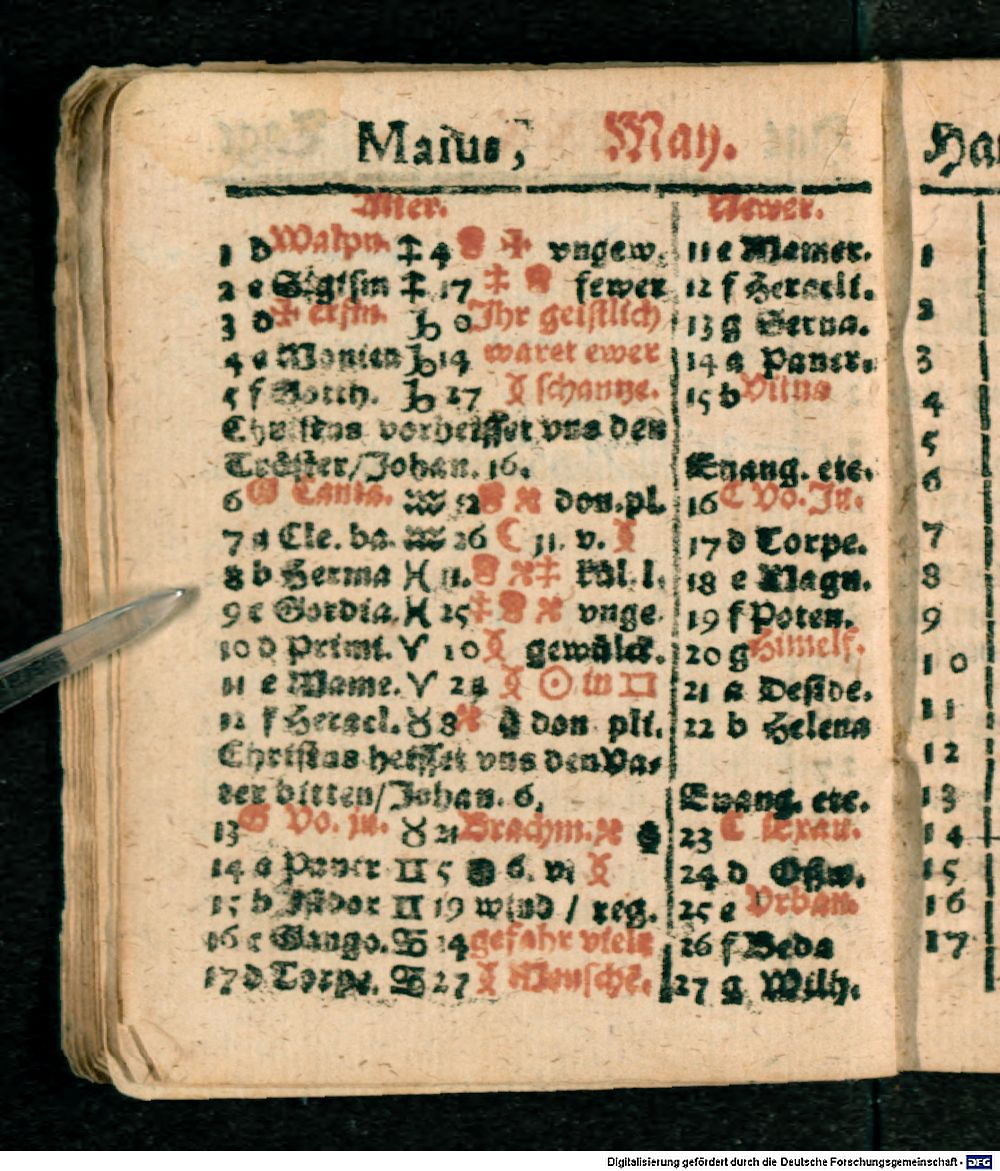 Maius, May.
Alter. Newer.
1 b Walpu. ♐ 4 vngew. 11 e Mamer.
2 e Sigism ♐ 17 fewer 12 f Heracli.
3 d ✠ erfin. ♑ 0 Ihr geistlich 13 g Serva.
4 e ♑ 14 waret ewer 14 a Pancr.
5 f Gotth. ♑ 27 ☿ schantze. 15 b
Christus vorheisset vns den
Tröster/Johan. 16. Euang. etc.
6 G Canta. ♒ 12 don. pl. 16 C Vo. Ju.
7 a Cle. ba. ♒ 26 ☾ 11. v. ☿ 17 d Torpe.
8 b Herma ♓ 11. kül. l. 18 e Magn.
9 c Gordia. ♓ 25 vnge 19 f Poten.
10 d Primi. ♈ 10 ☿ gewülck. 20 g Himelf.
11 e Mame. ♈ 24 ☿ ☉ in ♊ 21 a Deside.
12 f Heracl. ♉ 8 don pli. 22 b Helena
Christus heisset vns den Va-
ter bitten/Johan. 6. Evang. etc.
13 G Vo. ju. ♉ 21 Brachm. 23 C Exau.
14 a Pancr ♊ 5 6. v. ☿ 24 d
15 b Isidor ♊ 19 wind / reg. 25 e Vrban.
16 c Gango. ♋ 14 gefahr viele 26 f Beda
17 d Torpe. ♋ 27 ☿ Mensche. 27 g Wilh.
Ha
1
2
3
4
5
6
7
8
9
10
11
12
13
14
15
16
17
Digitalisierung gefördert durch die Deutsche Forschungsgemeinschaft - DFG